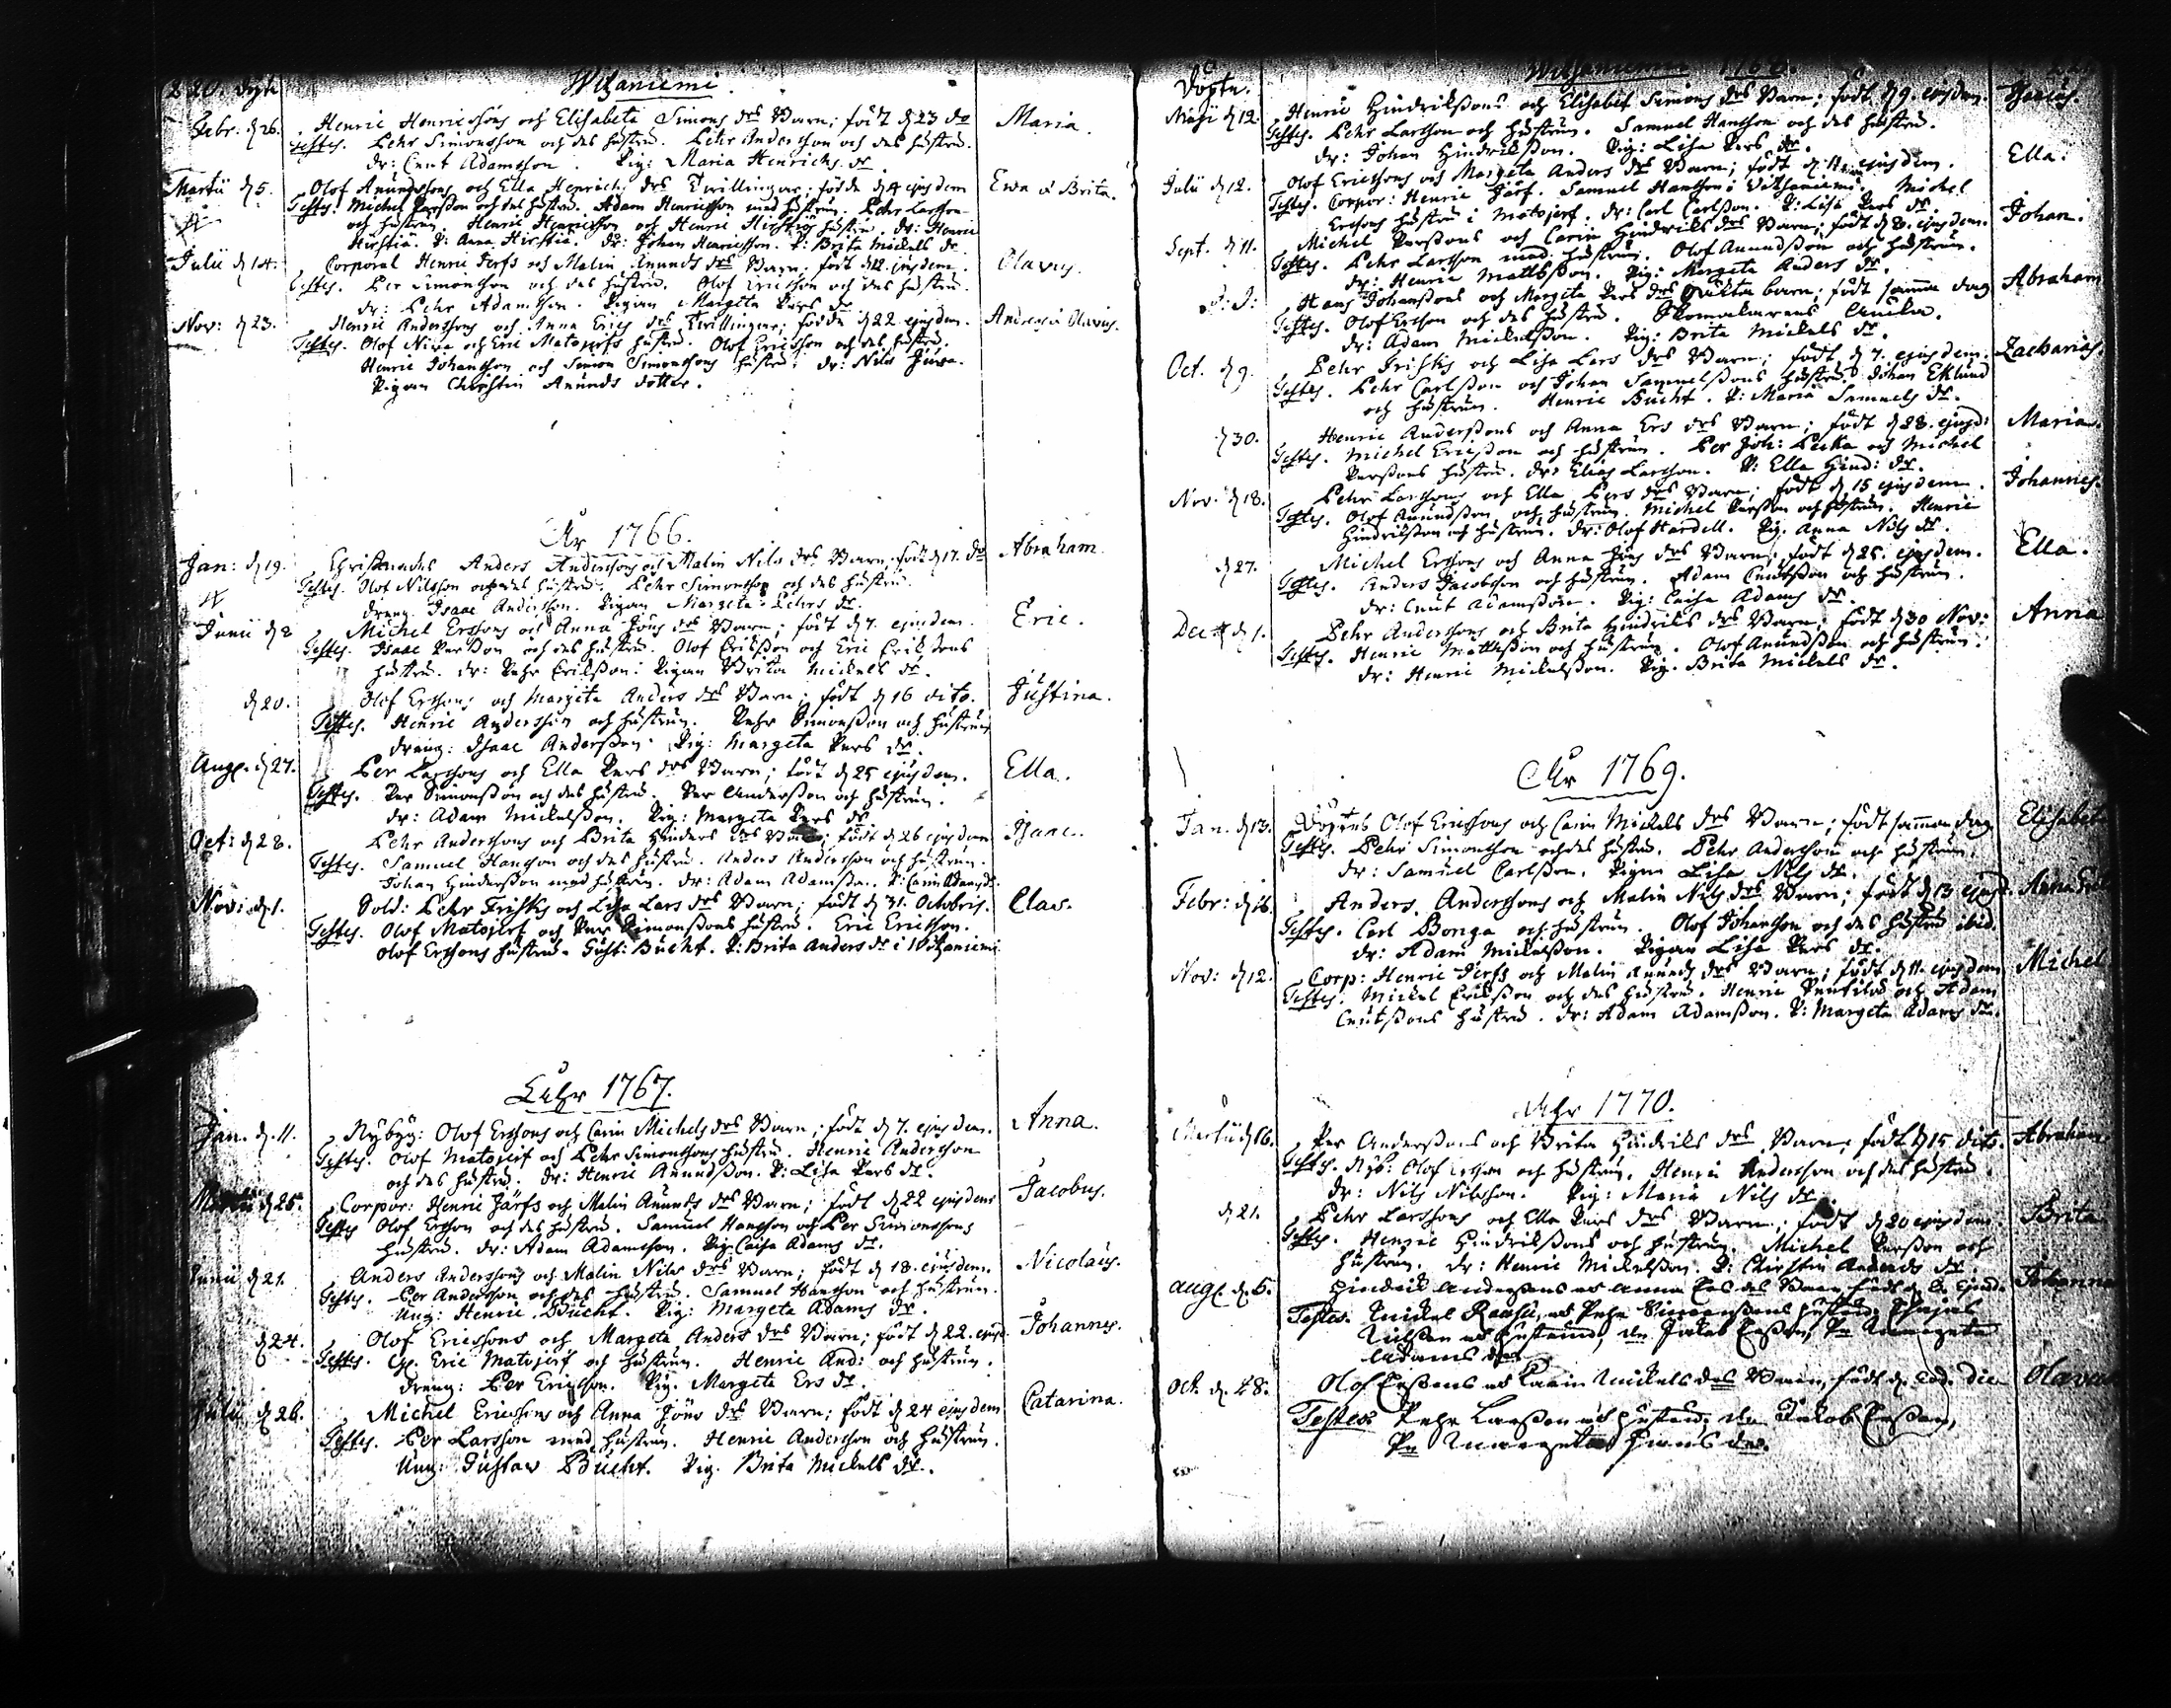 220. Döpte
Witzaniemi.
Febr: d 26. Henric Henricssons och Elisabeta Simons drs Barn; född d 23 do Maria.
Testes. Pehr Simonsson och des hustru. Pehr Andersson och des hustru.
dr: Cnut Adamsson. Pig: Maria Henrichs dr.
Martii d 5. Olof Anundssons och Ella Henrichs drs Twillingar; födde d 4 ejusdem Ewa o Brita.
Testes. Michel Persson och des hustru. Adam Henricsson med hustru. Pehr Larsson
och hustru. Henric Henricsson och Henric Hirstios hustru. dr: Henric
Hirstiä. P: Anna Hirstiä. dr: Johan Henricsson. P: Brita Mickels dr.
Julii d 14. Corporal Henric Jerfs och Malin Anunds drs Barn; född d 12 ejusdem. Olavus.
Testes. Per Simonsson och des hustru. Olof Ericsson och des hustru.
dr: Pehr Adamsson. Pigan Margeta Pers dr
Nov: d 23. Henric Anderssons och Anna Erics drs Twillingar; födde d 22 ejusdem. Andreas o Olavus.
Testes. Olof Niva och Eric Matojerfs hustru. Olof Ericsson och des hustru.
Henric Johansson och Simon Simonssons hustru. dr: Nils
Pigan Christin Anunds dotter.
År 1766.
Jan: d 19. Anders Anderssons och Malin Nils drs Barn; född d 17. do Abraham.
Testes. Olof Nilsson och des hustru. Pehr Simonsson och des hustru.
dräng. Isaac Andersson. Pigan Margeta Pehrs dr.
Junii d 8 Michel Erssons och Anna Jöns drs Barn; född d 7. ejusdem. Eric.
Testes. Isaac Persson och des hustru. Olof Eriksson och Eric Eriksons
hustru. dr: Pehr Eriksson. Pigan Brita Mickels dr.
d 20. Olof Erssons och Margeta Anders drs Barn; född d 16 dito. Justina.
Testes. Henric Andersson och hustru. Pehr Simonsson och hustru
dräng: Isaac Andersson. Pig: Margeta Pers dr.
Aug. d 27. Per Larssons och Ella Pers drs Barn; född d 25 ejusdem. Ella.
Testes. Per Simonsson och des hustru. Per Andersson och hustru.
dr: Adam Mickelsson. Pig: Margeta Pers dr
Oct: d 28. Pehr Anderssons och Brita Hinders drs Barn; född d 26 ejusdem Isaac.
Testes. Samuel Hansson och des hustru. Anders Andersson och hustru.
Johan Hindersson med hustru. dr: Adam Adamsson. P: Carin Adams dr.
Nov: d. 1. Sold: Pehr Friskss och Lisa Lars drs Barn; född d 31. Octobris. Clas.
Testes. Olof Matojerf och Per Simonssons hustru. Eric Ericsson.
Olof Erssons hustru. Gust: Bucht. P: Brita Anders dr i Witzaniemi
Åhr 1767.
Jan. d. 11. Nybyg: Olof Erssons och Carin Michels drs Barn; född d 7. ejusdem. Anna.
Testes. Olof Matojerf och Pehr Simonssons hustru. Henric Andersson
och des hustru. dr: Henric Anundsson. P: Lisa Pers dr.
Martii d 25. Corpor: Henric Järfs och Malin Anunds drs Barn; född d 22 ejusdem Jacobus.
Testes Olof Ersson och des hustru. Samuel Hansson och Per Simonssons
hustru. dr: Adam Adamsson. Pig. Caisa Adams dr.
Junii d 21. Anders Anderssons och Malin Nils drs Barn; född d 18. ejusdem. Nicolaus.
Testes. Per Andersson och des hustru. Samuel Hansson och hustru.
Ung: Henric Bucht. Pig: Margeta Adams dr.
d 24. Olof Ericssons och Margeta Anders drs Barn; född d 22. ejusd. Johannes.
Testes. Eric Matojerf och hustru. Henric And: och hustru.
dräng: Per Ericsson. Pig. Margeta Ers dr.
Julii d 26. Michel Ericssons och Anna Jöns drs Barn; född d 24 ejusdem Catarina.
Testes. Per Larsson med hustru. Henric Andersson och hustru.
Ung: Gustav Bucht. Pig. Brita Mickels dr.
Döpte.
Witzaniemi 1768.
Maji d 12. Henric Hindrikssons och Elisabet Simons drs Barn; född d 9. ejusdem.
Testes. Pehr Larsson och hustru. Samuel Hansson och des hustru.
dr: Johan Hindriksson. Pig: Lisa Pers dr.
Julii d 12. Olof Ericssons och Margeta Anders drs Barn; född d 11. ejusdem. Ella.
Testes. Corpor: Henric Järf. Samuel Hansson i Witzaniemi. Michel
Erssons hustru i Matojerf. dr: Carl Carlsson. P: Lisa Pers dr.
Sept. d 11. Michel Perssons och Carin Hindriks drs Barn; född d 8. ejusdem. Johan.
Testes. Pehr Larsson med hustru. Olof Anundsson och hustru.
dr: Henric Mattsson. Pig: Margeta Anders dr.
Hans Johanssons och Margeta Pers drs oäkta barn; född samma dag Abraham
Testes. Olof Ersson och des hustru. Skomakarens Enka.
dr: Adam Mickelsson. Pig: Brita Mickels dr.
Oct. d 9. Pehr Friskss och Lisa Lars drs Barn; född d 7. ejusdem. Zacharias.
Testes. Pehr Carlsson och Johan Samuelssons hustru. Johan Eklund
och hustru. Henric Bucht. P: Maria Samuels dr.
d 30. Henric Anderssons och Anna Ers drs Barn; född d 28. ejusd: Maria.
Testes. Michel Ericsson och hustru. Per Joh: Pecka och Michel
Perssons hustru. dr: Elias Larsson. P: Ella Hind: dr.
Nov. d 18. Pehr Larssons och Ella Pers drs Barn; född d 15 ejusdem. Johannes.
Testes. Olof Anundsson och hustru. Michel Persson och hustru. Henric
Hindriksson och hustru. dr: Olof Hardell. Pig. Anna Nils dr.
d 27. Michel Erssons och Anna Jöns drs Barn; född d 25. ejusdem. Ella.
Testes. Anders Jacobsson och hustru. Adam Cnutsson och hustru.
dr: Cnut Adamsson. Pig: Caisa Adams dr.
Dec d 1. Pehr Anderssons och Brita Hindriks drs Barn; född d 30 Nov: Anna
Testes. Henric Mattsson och hustru. Olof Anundsson och hustru.
dr: Henric Mickelsson. Pig. Brita Mickels dr.
År 1769.
Jan. d 13. Döptes Olof Ericssons och Carin Mickels drs Barn; född samma dag Elisabeta
Testes. Pehr Simonsson och des hustru. Pehr Andersson och hustru.
dr: Samuel Carlsson. Pigan Lisa Nils dr.
Febr: d 16. Anders Anderssons och Malin Nils drs Barn; född d 13 ejusd. Anna
Testes. Carl Bonga och hustru. Olof Johansson och des hustru ibid.
dr: Adam Mickelsson. Pigan Lisa Pers dr.
Nov: d 12. Corp: Henric Jerfs och Malin Anunds drs Barn; född d 11. ejusdem Michel
Testes. Mickel Eriksson och des hustru. Henric och Adam
Cnutssons hustru. dr: Adam Adamsson. P: Margeta Adams dr.
Åhr 1770.
Martii d 16. Per Anderssons och Brita Hindriks drs Barn; född d 15 dito. Abraham
Testes. Nyb: Olof Ersson och hustru. Henric Andersson och des hustru.
dr: Nils Nilsson. Pig: Maria Nils dr.
d. 21. Pehr Larssons och Ella Pers drs Barn; född d 20 ejusdem. Brita
Testes. Henric Hindrikssons och hustru. Michel Persson och
hustru. dr: Henric Mickelsson. P: Christin Anunds dr.
Aug. d. 6. Hindrik Anderssons och Anna Ers drs Barn född d. ejusd. Johanna
Testes. Mickel och Pehr Simonssons hustru.
Nilsson och hustru, dr Jakob Ersson, P. Margeta
Adams dr
Oct. d. 28. Olof Erssons och Karin Mickels drs Barn, född d. eod. die Olavus
Testes Pehr Larsson och hustru. dr Jakob Ersson,
P. Margeta Hans dr.